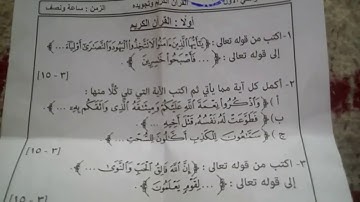 القرآن الكريم وتجويده الزمن : ساعة ونصف
أولًا : القرآن الكريم
١- اكتب من قوله تعالى : ﴿ يَٰٓأَيُّهَا ٱلَّذِينَ ءَامَنُوا۟ لَا تَتَّخِذُوا۟ ٱلْيَهُودَ وَٱلنَّصَٰرَىٰٓ أَوْلِيَآءَ... ﴾
إلى قوله تعالى : ﴿ ... فَأَصْبَحُوا۟ خَٰسِرِينَ ﴾
[٣ - ١٥]
٢- أكمل كل آية مما يأتي ثم اكتب الآية التي تلي كلًّا منها :
أ ) ﴿ وَٱذْكُرُوا۟ نِعْمَةَ ٱللَّهِ عَلَيْكُمْ وَمِيثَٰقَهُ ٱلَّذِى وَاثَقَكُم بِهِۦٓ ... ﴾
ب) ﴿ فَطَوَّعَتْ لَهُۥ نَفْسُهُۥ قَتْلَ أَخِيهِ ... ﴾
ج ) ﴿ سَمَّٰعُونَ لِلْكَذِبِ أَكَّٰلُونَ لِلسُّحْتِ ... ﴾
[٣ - ١٥]
٣- اكتب من قوله تعالى : ﴿ إِنَّ ٱللَّهَ فَالِقُ ٱلْحَبِّ وَٱلنَّوَىٰ ... ﴾
إلى قوله تعالى : ﴿ ... لِقَوْمٍ يَعْلَمُونَ ﴾
[٣ - ١٥]